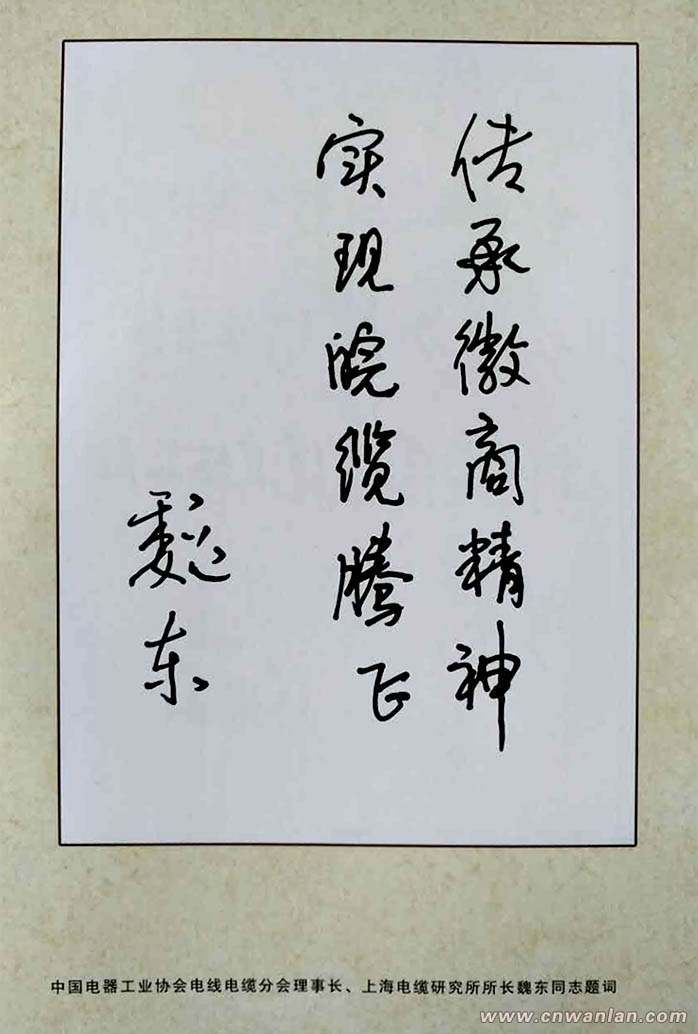 传承徽商精神
实现皖缆腾飞
魏东
中国电器工业协会电线电缆分会理事长、上海电缆研究所所长魏东同志题词
www.cnwanlan.com